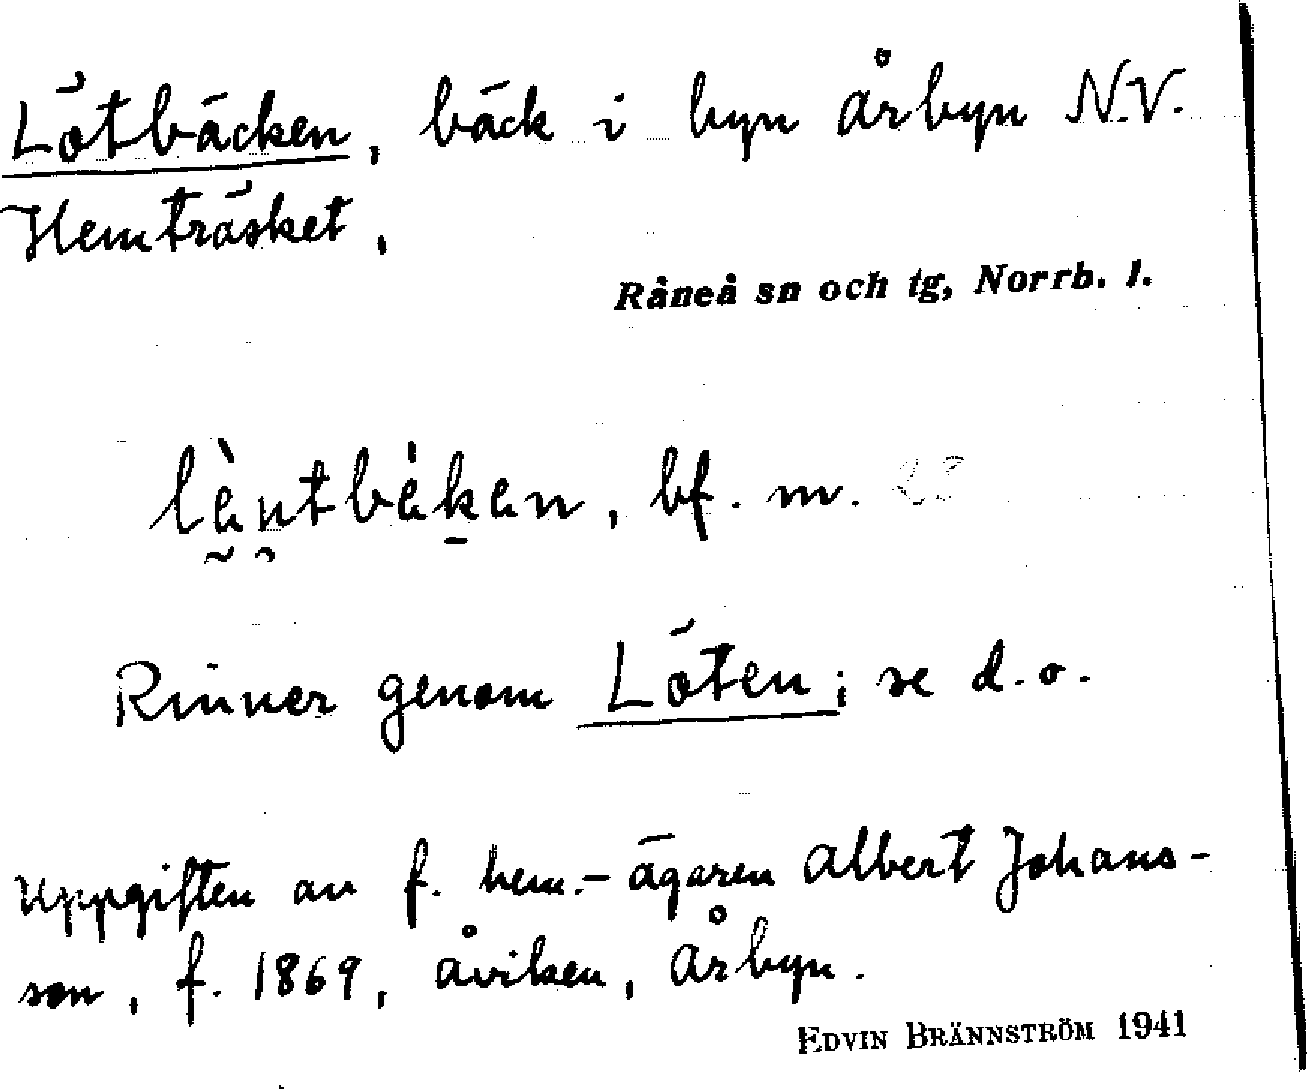 Lötbäcken, bäck i byn Årbyn N.V.
Hemträsket,
Råneå sn och tg, Norrb. l.
lèntbèken, bf. m.
Rinner genom Löten; se d.o.
Uppgiften av f. hem.-ägaren Albert Johans-
son, f. 1869, Åviken, Årbyn.
EDVIN BRÄNNSTRÖM 1941